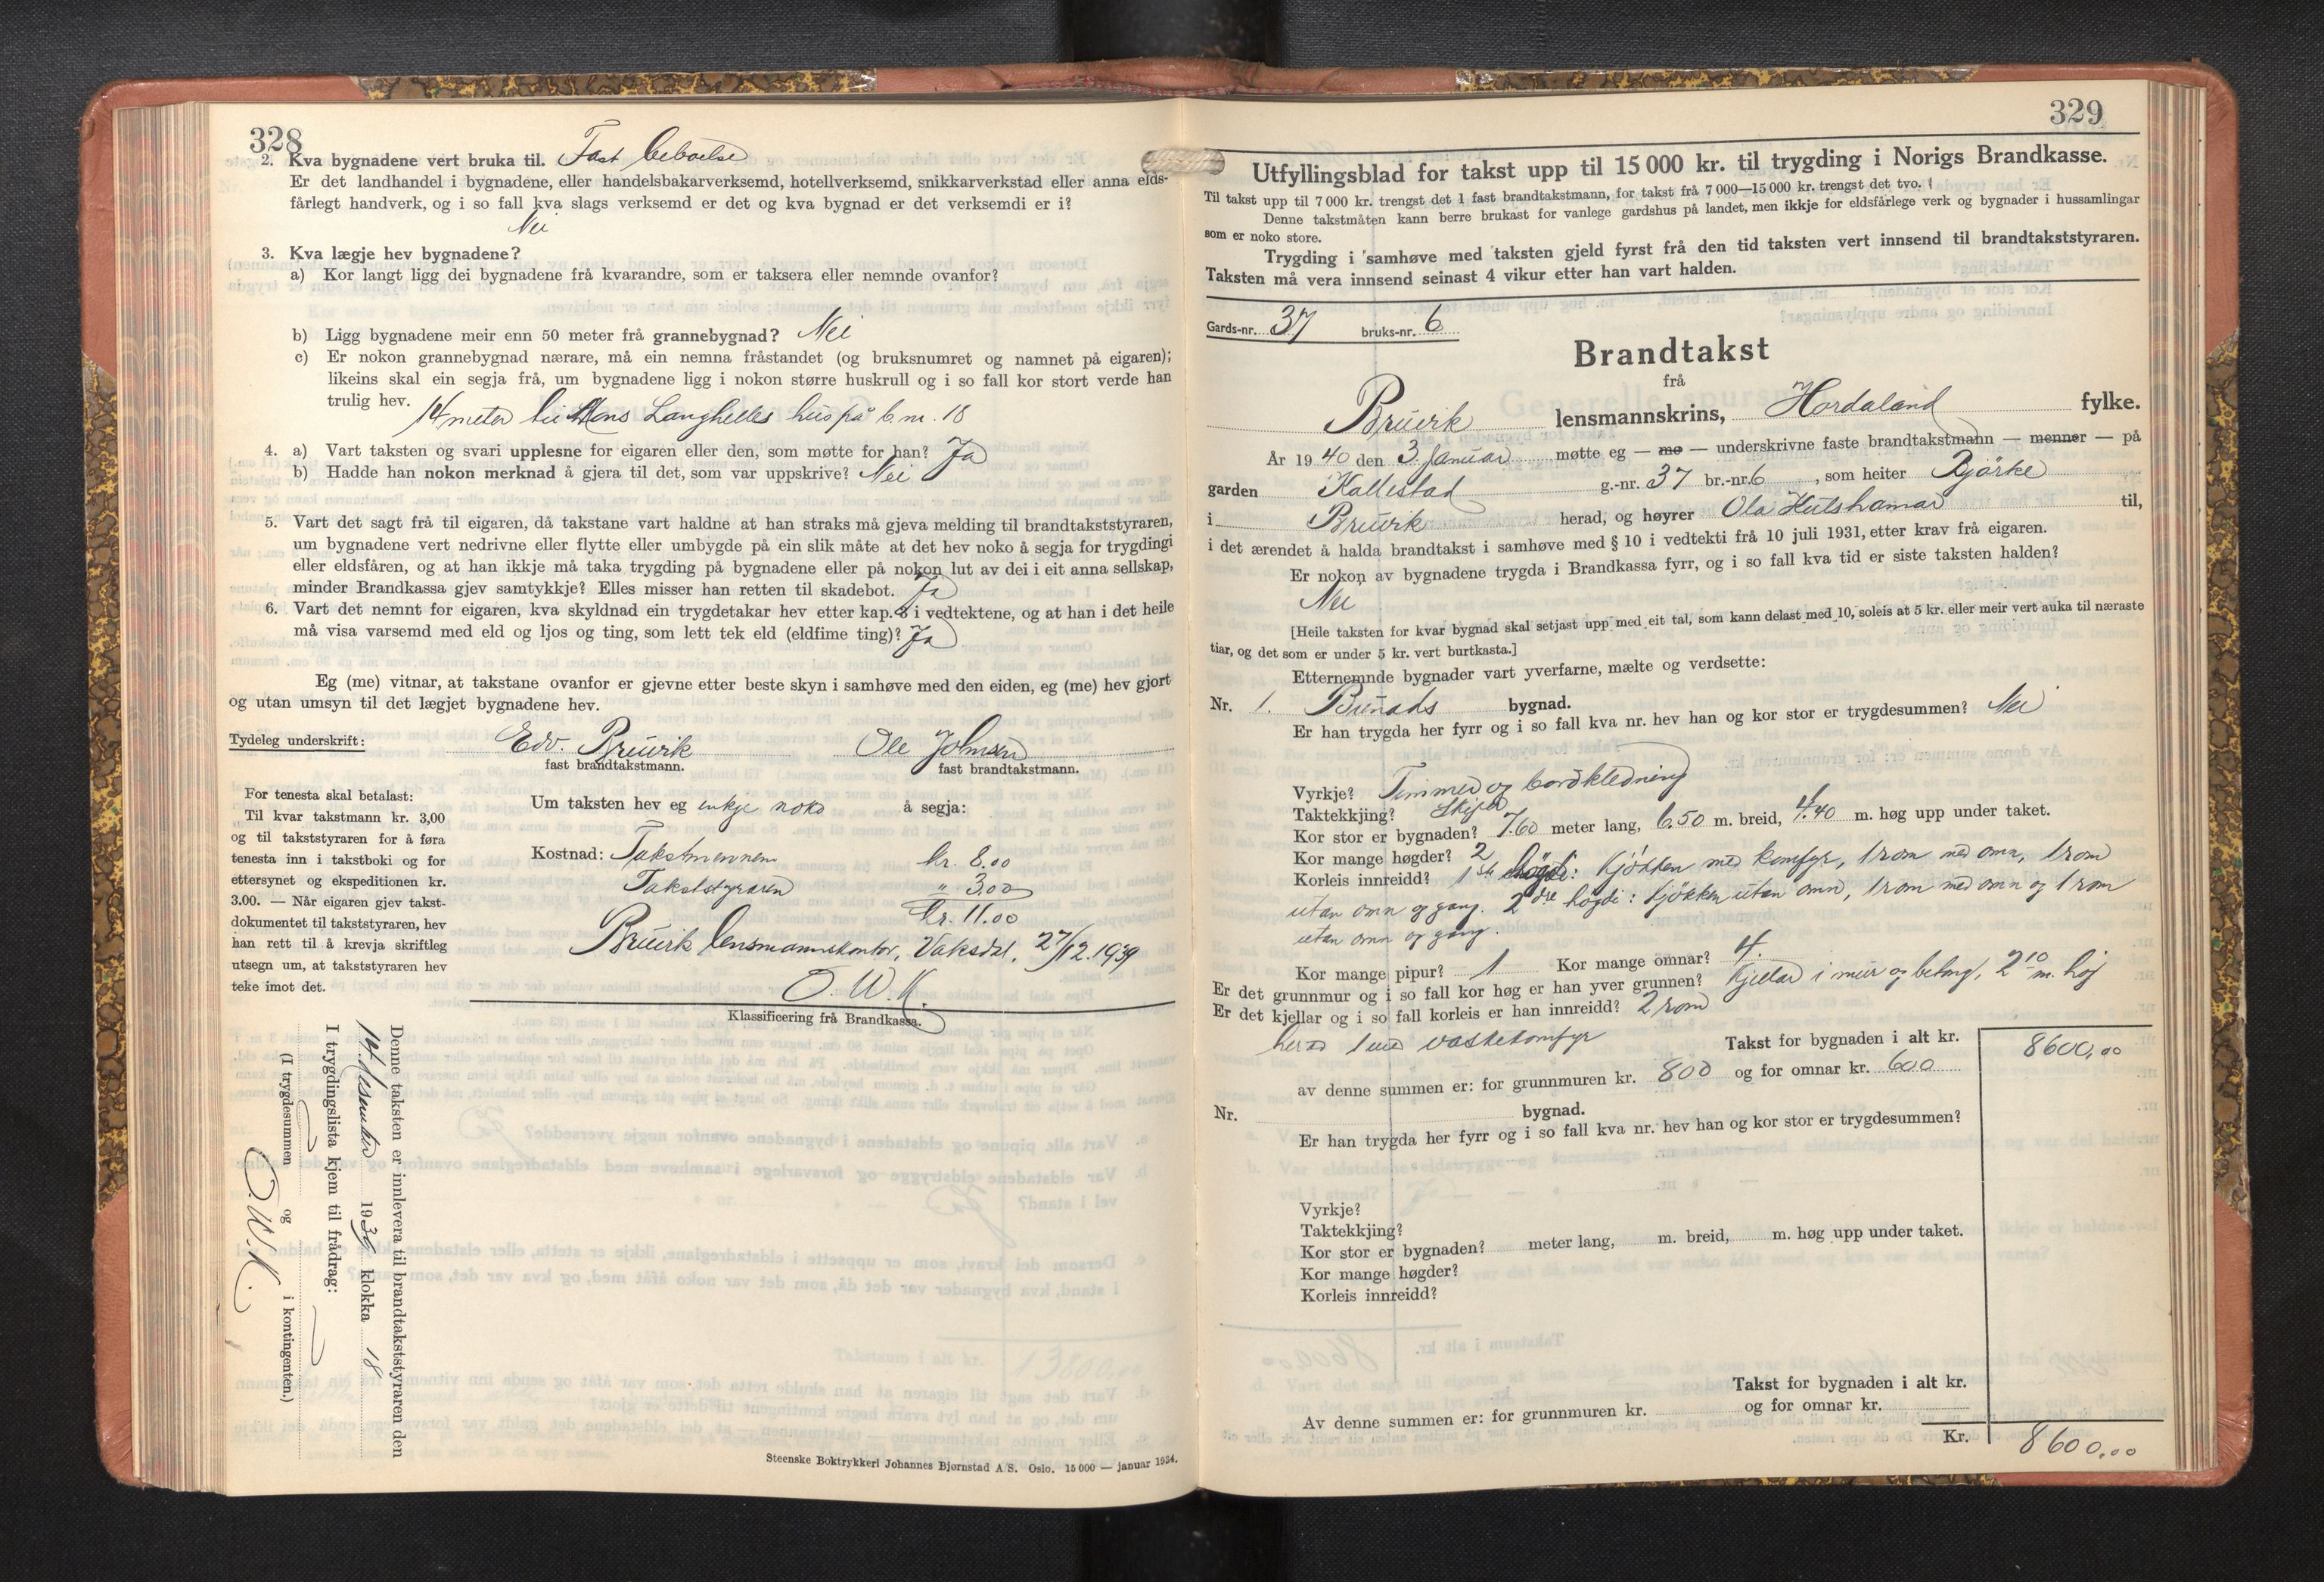 328
2. Kva bygnadene vert bruka til. Fast beboelse
Er det landhandel i bygnadene, eller handelsbakarverksemd, hotellverksemd, snikkarverkstad eller anna elds-
fårlegt handverk, og i so fall kva slags verksemd er det og kva bygnad er det verksemdi er i?
Nei
3. Kva lægje hev bygnadene?
a) Kor langt ligg dei bygnadene frå kvarandre, som er taksera eller nemnde ovanfor?
b) Ligg bygnadene meir enn 50 meter frå grannebygnad? Nei
c) Er nokon grannebygnad nærare, må ein nemna fråstandet (og bruksnumret og namnet på eigaren);
likeins skal ein segja frå, um bygnadene ligg i nokon større huskrull og i so fall kor stort verde han
trulig hev.
14 meter til Mons Langhelles hus på b. nr. 18
4. a) Vart taksten og svari upplesne for eigaren eller den, som møtte for han? Ja
b) Hadde han nokon merknad å gjera til det, som var uppskrive? Nei
5. Vart det sagt frå til eigaren, då takstane vart haldne at han straks må gjeva melding til brandtakststyraren,
um bygnadene vert nedrivne eller flytte eller umbygde på ein slik måte at det hev noko å segja for trygdingi
eller eldsfåren, og at han ikkje må taka trygding på bygnadene eller på nokon lut av dei i eit anna sellskap,
minder Brandkassa gjev samtykkje? Elles misser han retten til skadebot. Ja
6. Vart det nemnt for eigaren, kva skyldnad ein trygdetakar hev etter kap. 8 i vedtektene, og at han i det heile
må visa varsemd med eld og ljos og ting, som lett tek eld (eldfime ting)? Ja
Eg (me) vitnar, at takstane ovanfor er gjevne etter beste skyn i samhøve med den eiden, eg (me) hev gjort
og utan umsyn til det lægjet bygnadene hev.
Tydeleg underskrift: Edv. Bruvik Ole Johnsen
fast brandtakstmann. fast brandtakstmann.
For tenesta skal betalast:
Til kvar takstmann kr. 3,00
og til takststyraren for å føra
tenesta inn i takstboki og for
ettersynet og ekspeditionen kr.
3.00. — Når eigaren gjev takst-
dokumentet til takststyraren, hev
han rett til å krevja skriftleg
utsegn um, at takststyraren hev
teke imot det.
Um taksten hev eg inkje noko å segja:
Kostnad: Takstmennene kr. 8.00
Takststyraren " 3.00
kr. 11.00
Bruvik lensmannskontor, Vaksdal, 27/12.1939
O. W. K.
Klassificering frå Brandkassa.
Denne taksten er innlevera til brandtakststyraren den
14. desember 1939 klokka 18
I trygdingslista kjem til frådrag:
(I trygdesummen og i kontingenten.)
O. W. K.
Steenske Boktrykkeri Johannes Bjørnstad A/S. Oslo. 15 000 — januar 1934.
329
Utfyllingsblad for takst upp til 15 000 kr. til trygding i Norigs Brandkasse.
Til takst upp til 7 000 kr. trengst det 1 fast brandtakstmann, for takst frå 7 000—15 000 kr. trengst det tvo.
Denne takstmåten kann berre brukast for vanlege gardshus på landet, men ikkje for eldsfårlege verk og bygnader i hussamlingar
som er noko store.
Trygding i samhøve med taksten gjeld fyrst frå den tid taksten vert innsend til brandtakststyraren.
Taksten må vera innsend seinast 4 vikur etter han vart halden.
Gards-nr. 37 bruks-nr. 6
Brandtakst
frå
Bruvik lensmannskrins, Hordaland fylke.
År 1940 den 3. januar møtte eg — me — underskrivne faste brandtakstmann — menner — på
garden Kallestad g.-nr. 37 br.-nr. 6, som heiter Bjørke
i Bruvik herad, og høyrer Ola Hulshamar til,
i det ærendet å halda brandtakst i samhøve med § 10 i vedtekti frå 10 juli 1931, etter krav frå eigaren.
Er nokon av bygnadene trygda i Brandkassa fyrr, og i so fall kva tid er siste taksten halden?
Nei
[Heile taksten for kvar bygnad skal setjast upp med eit tal, som kann delast med 10, soleis at 5 kr. eller meir vert auka til næraste
tiar, og det som er under 5 kr. vert burtkasta.]
Etternemnde bygnader vart yverfarne, mælte og verdsette:
Nr. 1. Bunads bygnad.
Er han trygda her fyrr og i so fall kva nr. hev han og kor stor er trygdesummen? Nei
Vyrkje? Timmer og bordkledning
Taktekkjing? Skifer
Kor stor er bygnaden? 7.60 meter lang, 6.50 m. breid, 4.40 m. høg upp under taket.
Kor mange høgder? 2
Korleis innreidd? 1ste høgde: Kjøkken med komfyr, 1 rom med omn, 1 rom
utan omn og gang. 2dre høgde: kjøkken utan omn, 1 rom med omn og 1 rom
utan omn og gang.
Kor mange pipur? 1 Kor mange omnar? 4.
Er det grunnmur og i so fall kor høg er han yver grunnen? Kjellar i mur og betong, 2.10 m. høg
Er det kjellar og i so fall korleis er han innreidd? 2 rom
herav 1 med vaskekomfyr
Takst for bygnaden i alt kr. 8600,00
av denne summen er: for grunnmuren kr. 800 og for omnar kr. 600
Nr. bygnad.
Er han trygda her fyrr og i so fall kva nr. hev han og kor stor er trygdesummen?
Vyrkje?
Taktekkjing?
Kor stor er bygnaden? meter lang, m. breid, m. høg upp under taket.
Kor mange høgder?
Korleis innreidd?
Takst for bygnaden i alt kr.
Av denne summen er: for grunnmuren kr. og for omnar kr.
Kr. 8600,00